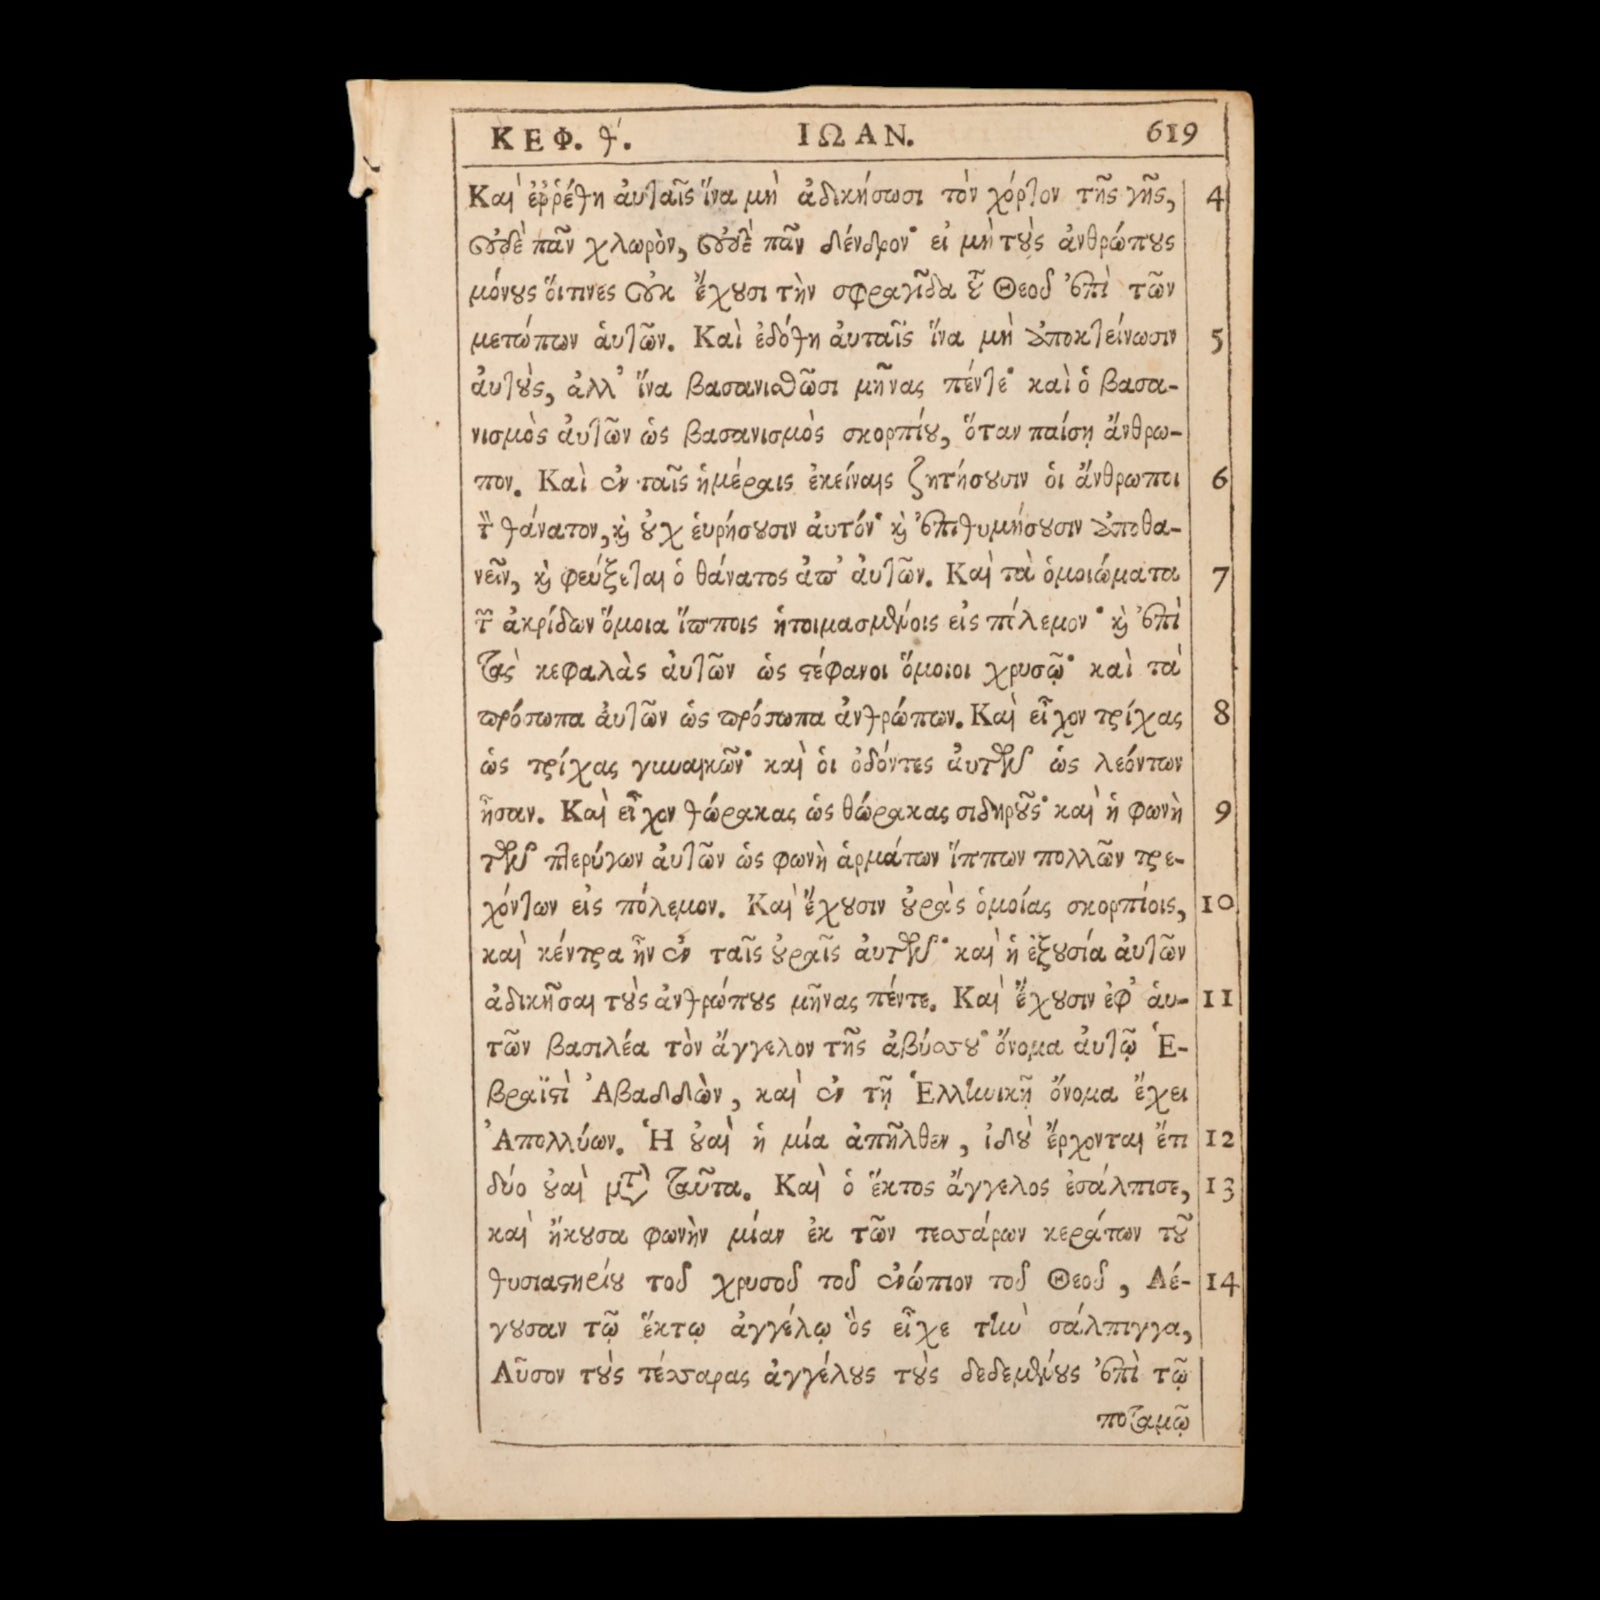 ΚΕΦ. θ'. ΙΩΑΝ. 619
Καὶ ἐῤῥέθη ἀυταῖς ἵνα μὴ ἀδικήσωσι τὸν χόρτον τῆς γῆς, 4
οὐδὲ πᾶν χλωρὸν, οὐδὲ πᾶν δένδρον· εἰ μὴ τοὺς ἀνθρώπους
μόνους ὅιτινες οὐκ ἔχουσι τὴν σφραγῖδα τοῦ Θεοῦ ἐπὶ τῶν
μετώπων ἁυτῶν. Καὶ ἐδόθη ἀυταῖς ἵνα μὴ ἀποκτείνωσιν 5
ἀυτοὺς, ἀλλ' ἵνα βασανισθῶσι μῆνας πέντε· καὶ ὁ βασα-
νισμὸς ἀυτῶν ὡς βασανισμὸς σκορπίου, ὅταν παίσῃ ἄνθρω-
πον. Καὶ ἐν ταῖς ἡμέραις ἐκείναις ζητήσουσιν ὁι ἄνθρωποι 6
τὸν θάνατον, καὶ οὐχ ἑυρήσουσιν ἀυτόν· καὶ ἐπιθυμήσουσιν ἀποθα-
νεῖν, καὶ φεύξεται ὁ θάνατος ἀπ' ἀυτῶν. Καὶ τὰ ὁμοιώματα 7
τῶν ἀκρίδων ὅμοια ἵπποις ἡτοιμασμένοις εἰς πόλεμον· καὶ ἐπὶ
τὰς κεφαλὰς ἀυτῶν ὡς στέφανοι ὅμοιοι χρυσῷ· καὶ τὰ
πρόσωπα ἀυτῶν ὡς πρόσωπα ἀνθρώπων. Καὶ εἶχον τρίχας 8
ὡς τρίχας γυναικῶν· καὶ ὁι ὀδόντες ἀυτῶν ὡς λεόντων
ἦσαν. Καὶ εἶχον θώρακας ὡς θώρακας σιδηροῦς· καὶ ἡ φωνὴ 9
τῶν πτερύγων ἀυτῶν ὡς φωνὴ ἁρμάτων ἵππων πολλῶν τρε-
χόντων εἰς πόλεμον. Καὶ ἔχουσιν οὐρὰς ὁμοίας σκορπίοις, 10
καὶ κέντρα ἦν ἐν ταῖς οὐραῖς ἀυτῶν· καὶ ἡ ἐξουσία ἀυτῶν
ἀδικῆσαι τοὺς ἀνθρώπους μῆνας πέντε. Καὶ ἔχουσιν ἐφ' ἁυ- 11
τῶν βασιλέα τὸν ἄγγελον τῆς ἀβύσσου· ὄνομα ἀυτῷ Ἑ-
βραϊστὶ Ἀβαδδὼν, καὶ ἐν τῇ Ἑλληνικῇ ὄνομα ἔχει
Ἀπολλύων. Ἡ οὐαὶ ἡ μία ἀπῆλθεν, ἰδοὺ ἔρχονται ἔτι 12
δύο οὐαὶ μετὰ ταῦτα. Καὶ ὁ ἕκτος ἄγγελος ἐσάλπισε, 13
καὶ ἤκουσα φωνὴν μίαν ἐκ τῶν τεσσάρων κεράτων τοῦ
θυσιαστηρίου τοῦ χρυσοῦ τοῦ ἐνώπιον τοῦ Θεοῦ, Λέ- 14
γουσαν τῷ ἕκτῳ ἀγγέλῳ ὃς εἶχε τὴν σάλπιγγα,
Λῦσον τοὺς τέσσαρας ἀγγέλους τοὺς δεδεμένους ἐπὶ τῷ
ποταμῷ